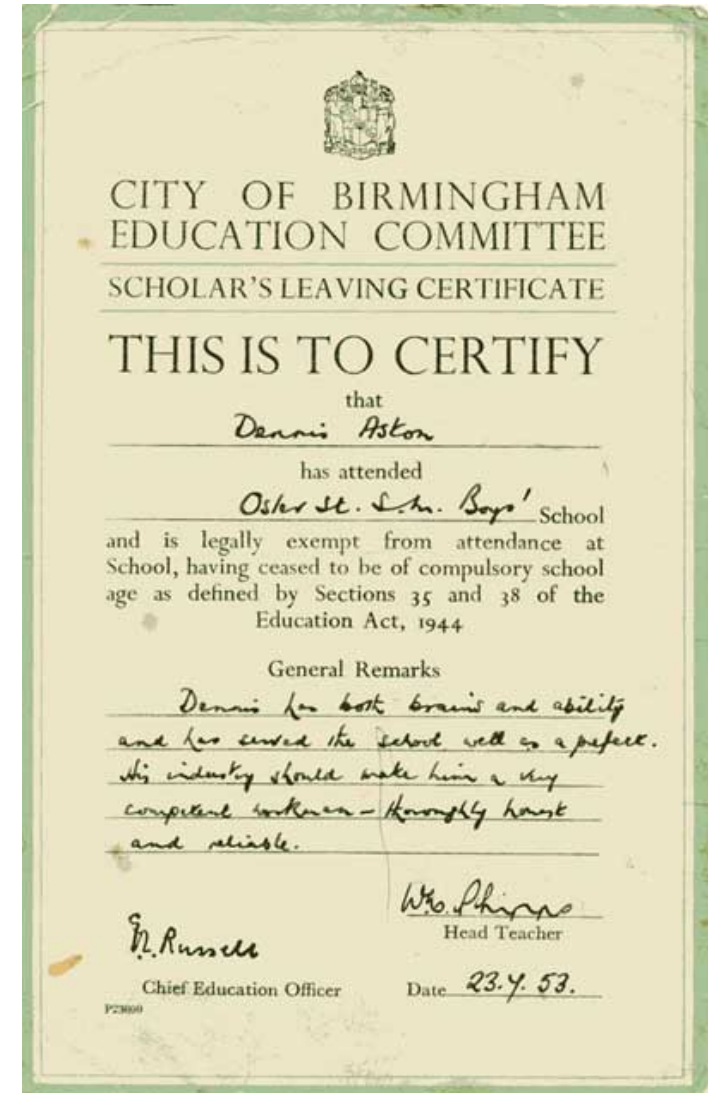 CITY OF BIRMINGHAM
EDUCATION COMMITTEE
SCHOLAR'S LEAVING CERTIFICATE
THIS IS TO CERTIFY
that
Dennis Aston
has attended
Osler St. S.M. Boys' School
and is legally exempt from attendance at
School, having ceased to be of compulsory school
age as defined by Sections 35 and 38 of the
Education Act, 1944
General Remarks
Dennis has both brains and ability
and has served the school well as a prefect.
His industry should make him a very
competent workman – thoroughly honest
and reliable.
Phipps
Head Teacher
Russell
Chief Education Officer
Date 23.7.53.